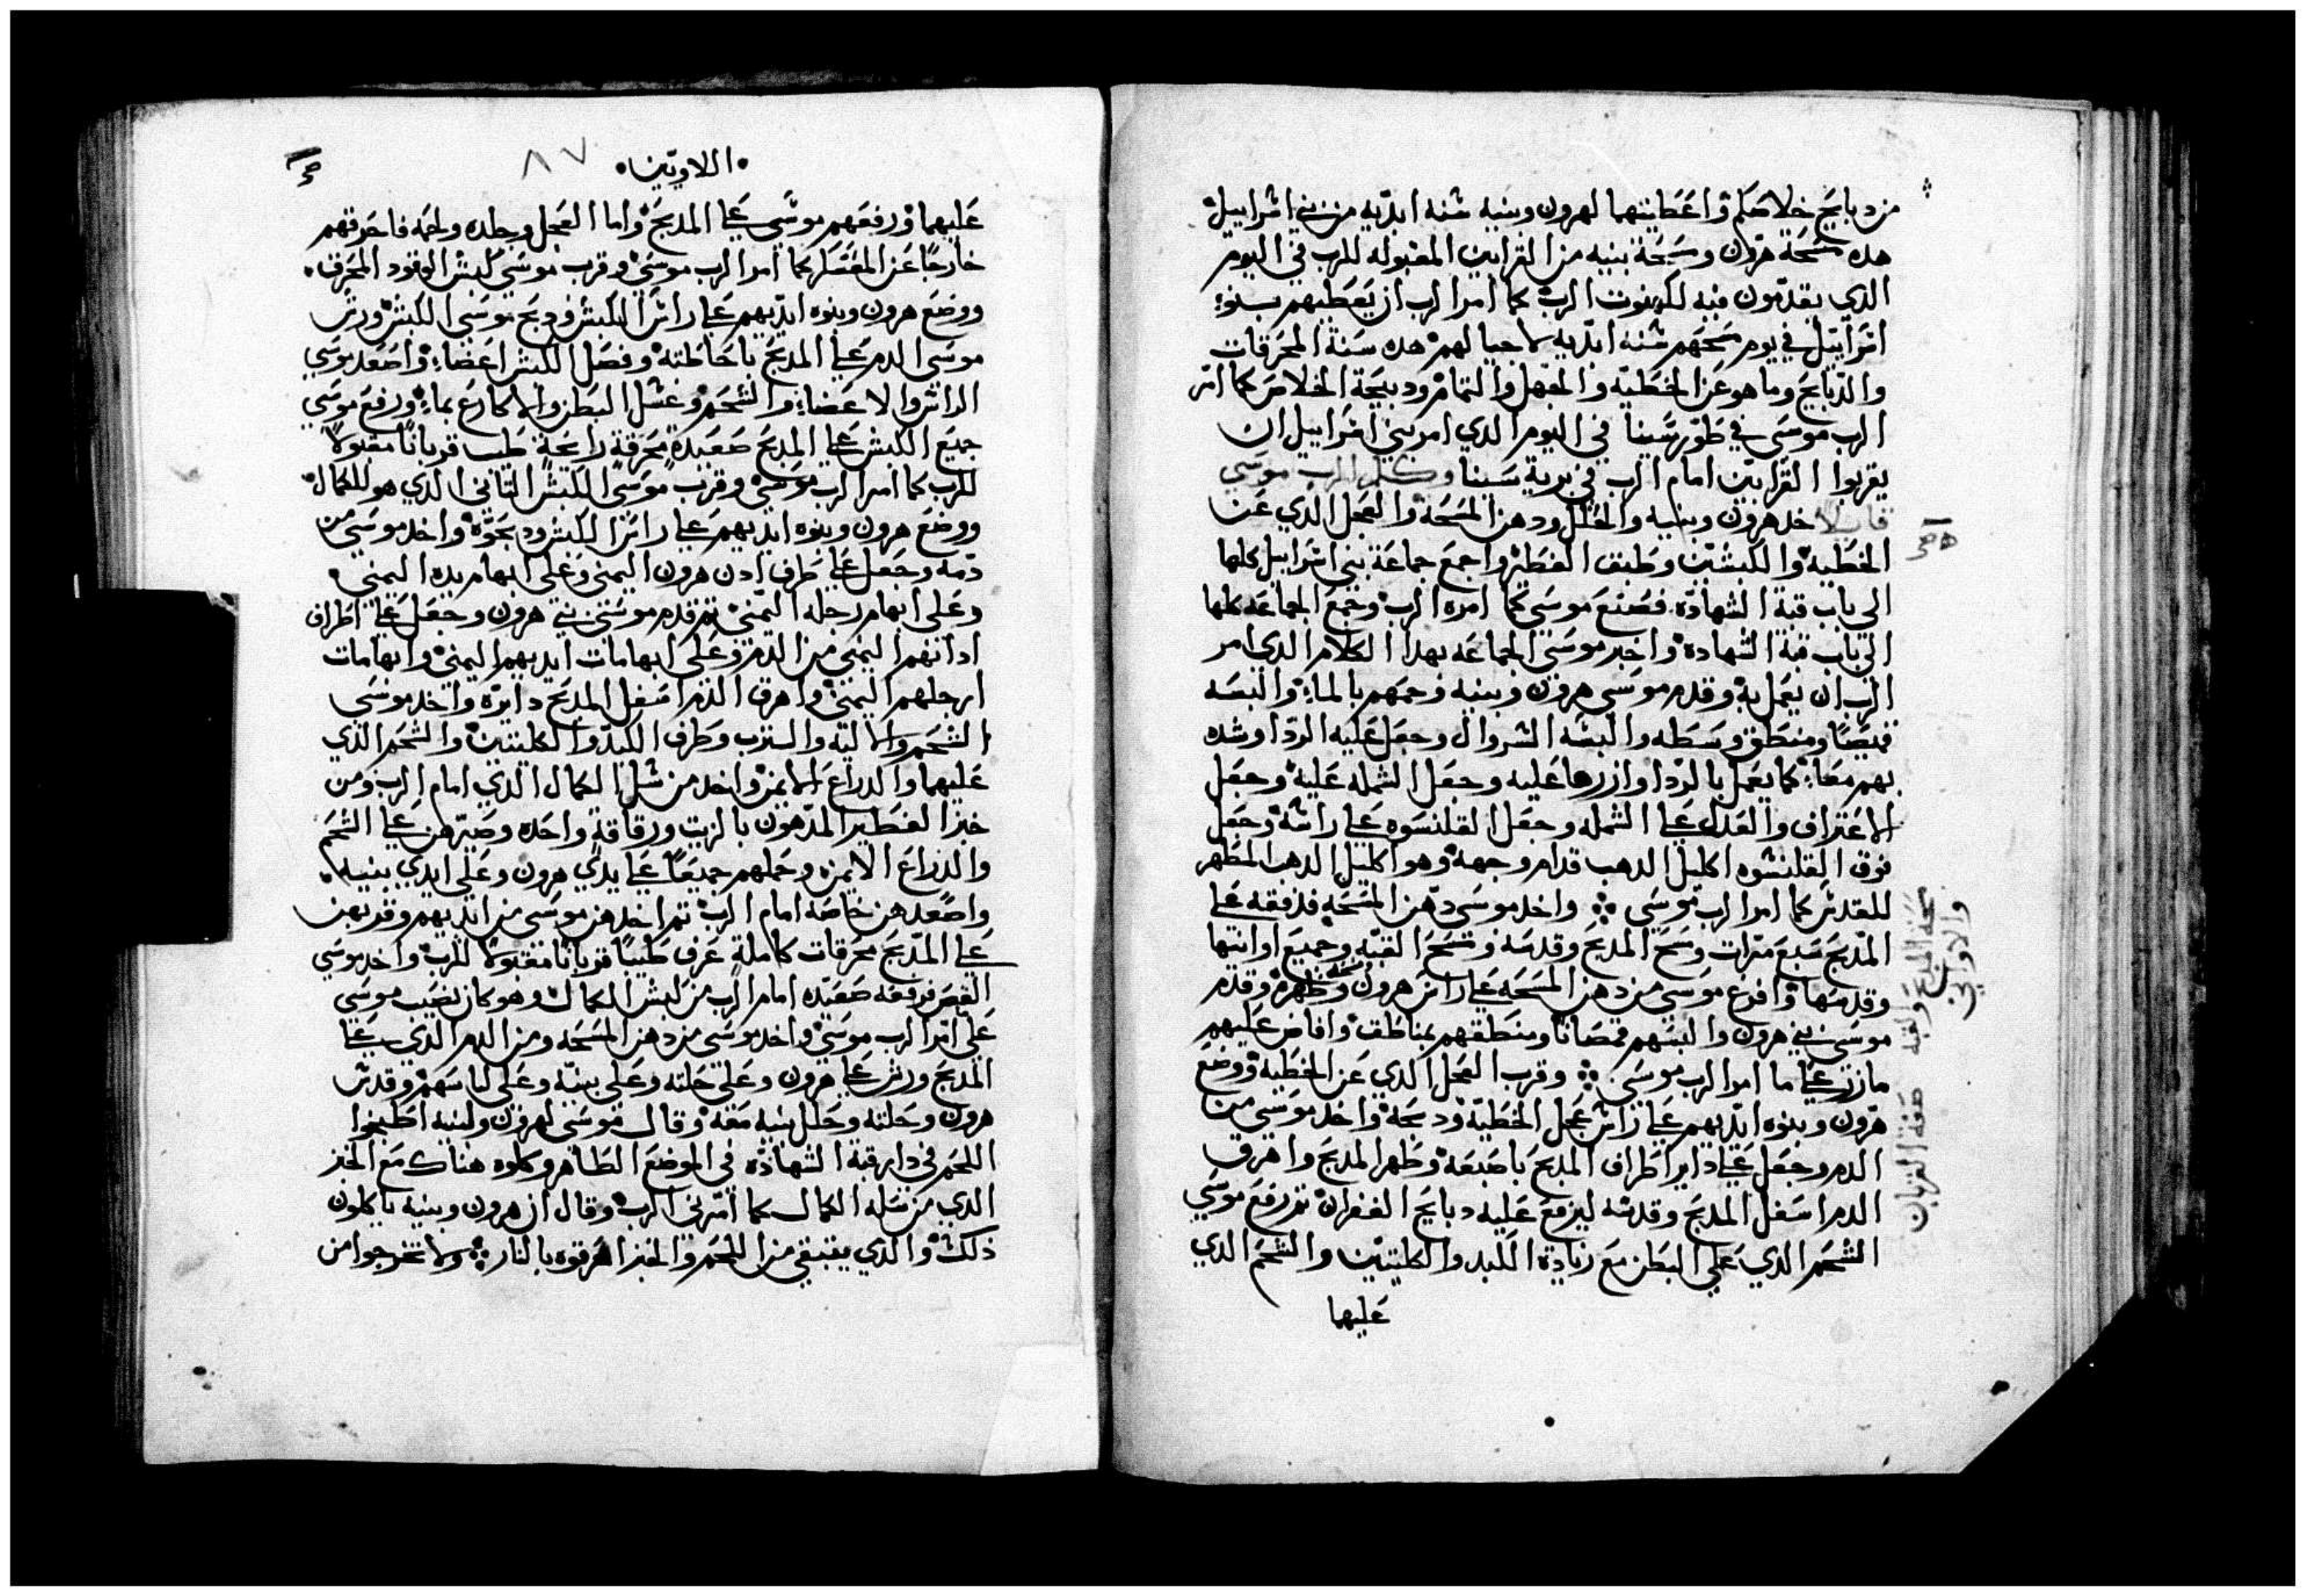 من دبايح خلاصكم واعطايتهما لهرون وبنيه سنه ابديه من بني اسراييل
هده مسحة هرون ومسحة بنيه من القرابين المقبوله للرب في اليوم
الدي يقدمون فيه لكهنوت الرب كما امر الرب ان يعطيهم بنو
اسراييل في يوم مسحهم سنه ابديه لاجيالهم هده سنة المحرقات
والدبايح وما هو عن الخطيه والجهل والتمام ودبيحة الخلاص كما امر
الرب موسي في طور سينا في اليوم الدي امر بني اسراييل ان
يقربوا القرابين امام الرب في برية سينا وكلم الرب موسي
قايلا خد هرون وبنيه والحلل ودهن المسحه والعجل الدي عن
الخطيه والكبشين وطبق الفطير واجمع جماعة بني اسراييل كلها
الي باب قبة الشهاده فصنع موسي كما امره الرب وجمع الجماعه كلها
الي باب قبة الشهاده واخبر موسي الجماعه بهدا الكلام الدي امر
الرب ان يعمل به وقدم موسي هرون وبنيه وحمهم بالماء والبسه
قميصا ومنطق وسطه والبسه السروال وجعل عليه الردا وشده
بهم معا كما يعمل بالردا وازرها عليه وجعل الشمله عليه وجعل
الاعتراف والعدل علي الشمله وجعل القلنسوه علي راسه وجعل
فوق القلنسوه اكليل الدهب قدام وجهه وهو اكليل الدهب المطهر
للقدس كما امر الرب موسي واخد موسي دهن المسحه فدفقه علي
المدبح سبع مرات ومسح المدبح وقدسه ومسح القبه وجميع اوانتها
وقدسها وافرع موسي من دهن المسحه علي راس هرون ومسحه وطهره وقدم
موسي بني هرون والبسهم قمصانا ومنطقهم بمناطق وافاض عليهم
مازر علي ما امر الرب موسي وقرب العجل الدي عن الخطيه ووضع
هرون وبنوه ايديهم علي راس عجل الخطيه ودبحه واخد موسي من
الدم وجعل علي داير اطراف المدبح باصبعه وطهر المدبح واهرق
الدم اسفل المدبح وقدسه ليرفع عليه دبايح الغفران تم رفع موسي
الشحم الدي علي البطن مع زيادة الكبد والكليتين والشحم الدي
عليهما
مسحة المدبح والقبه
والاواني
صفة القربان
اللاويين
٨٧
عليهما ورفعهم موسي علي المدبح واما العجل وجلده ولحمه فاحرقهم
خارجا عن المعسكر كما امر الرب موسي وقرب موسي كبش الوقود المحرق
ووضع هرون وبنوه ايديهم علي راس الكبش ودبح موسي الكبش ورش
موسي الدم علي المدبح باحاطته وفصل الكبش اعضاء واصعد موسي
الراس والاعضاء والشحم وغسل البطن والاكارع بماء ورفع موسي
جميع الكبش علي المدبح صعيدة محرقة رايحة طيب قربانا مقبولا
للرب كما امر الرب موسي وقرب موسي الكبش التاني الدي هو للكمال
ووضع هرون وبنوه ايديهم علي راس الكبش ودبحوه واخد موسي من
دمه وجعل علي طرف ادن هرون اليمني وعلي ابهام يده اليمني
وعلي ابهام رجله اليمني تم قدم موسي بني هرون وجعل علي اطراف
ادانهم اليمني من الدم وعلي ابهامات ايديهم اليمني وابهامات
ارجلهم اليمني واهرق الدم اسفل المدبح دايره واخد موسي
الشحم والاليه والترب وطرف الكبد والكليتين والشحم الدي
عليهما والدراع الايمن واخد من سل الكمال الدي امام الرب ومن
خبز الفطير المدهون بالزيت ورقاقة واحده وصيرهن علي الشحم
والدراع الايمن وحملهم جميعا علي يدي هرون وعلي ايدي بنيه
واصعدهن خاصه امام الرب تم اخدهن موسي من ايديهم وقربهن
علي المدبح محرقات كاملة عرف طيبا قربانا مقبولا للرب واخد موسي
القص فرفعه صعيده امام الرب من كبش الكمال وهو كان نصيب موسي
علي امر الرب موسي واخد موسي من دهن المسحه ومن الدم الدي علي
المدبح ورش علي هرون وعلي حلته وعلي بنيه وعلي لباسهم وقدس
هرون وحلته وحلل بنيه معه وقال موسي لهرون ولبنيه اطبخوا
اللحم في دار قبة الشهاده في الموضع الطاهر وكلوه هناك مع الخبز
الدي من سله الكمال كما امرني الرب وقال ان هرون وبنيه ياكلون
دلك والدي يتبقي من اللحم والخبز احرقوه بالنار ولا تخرجوا من